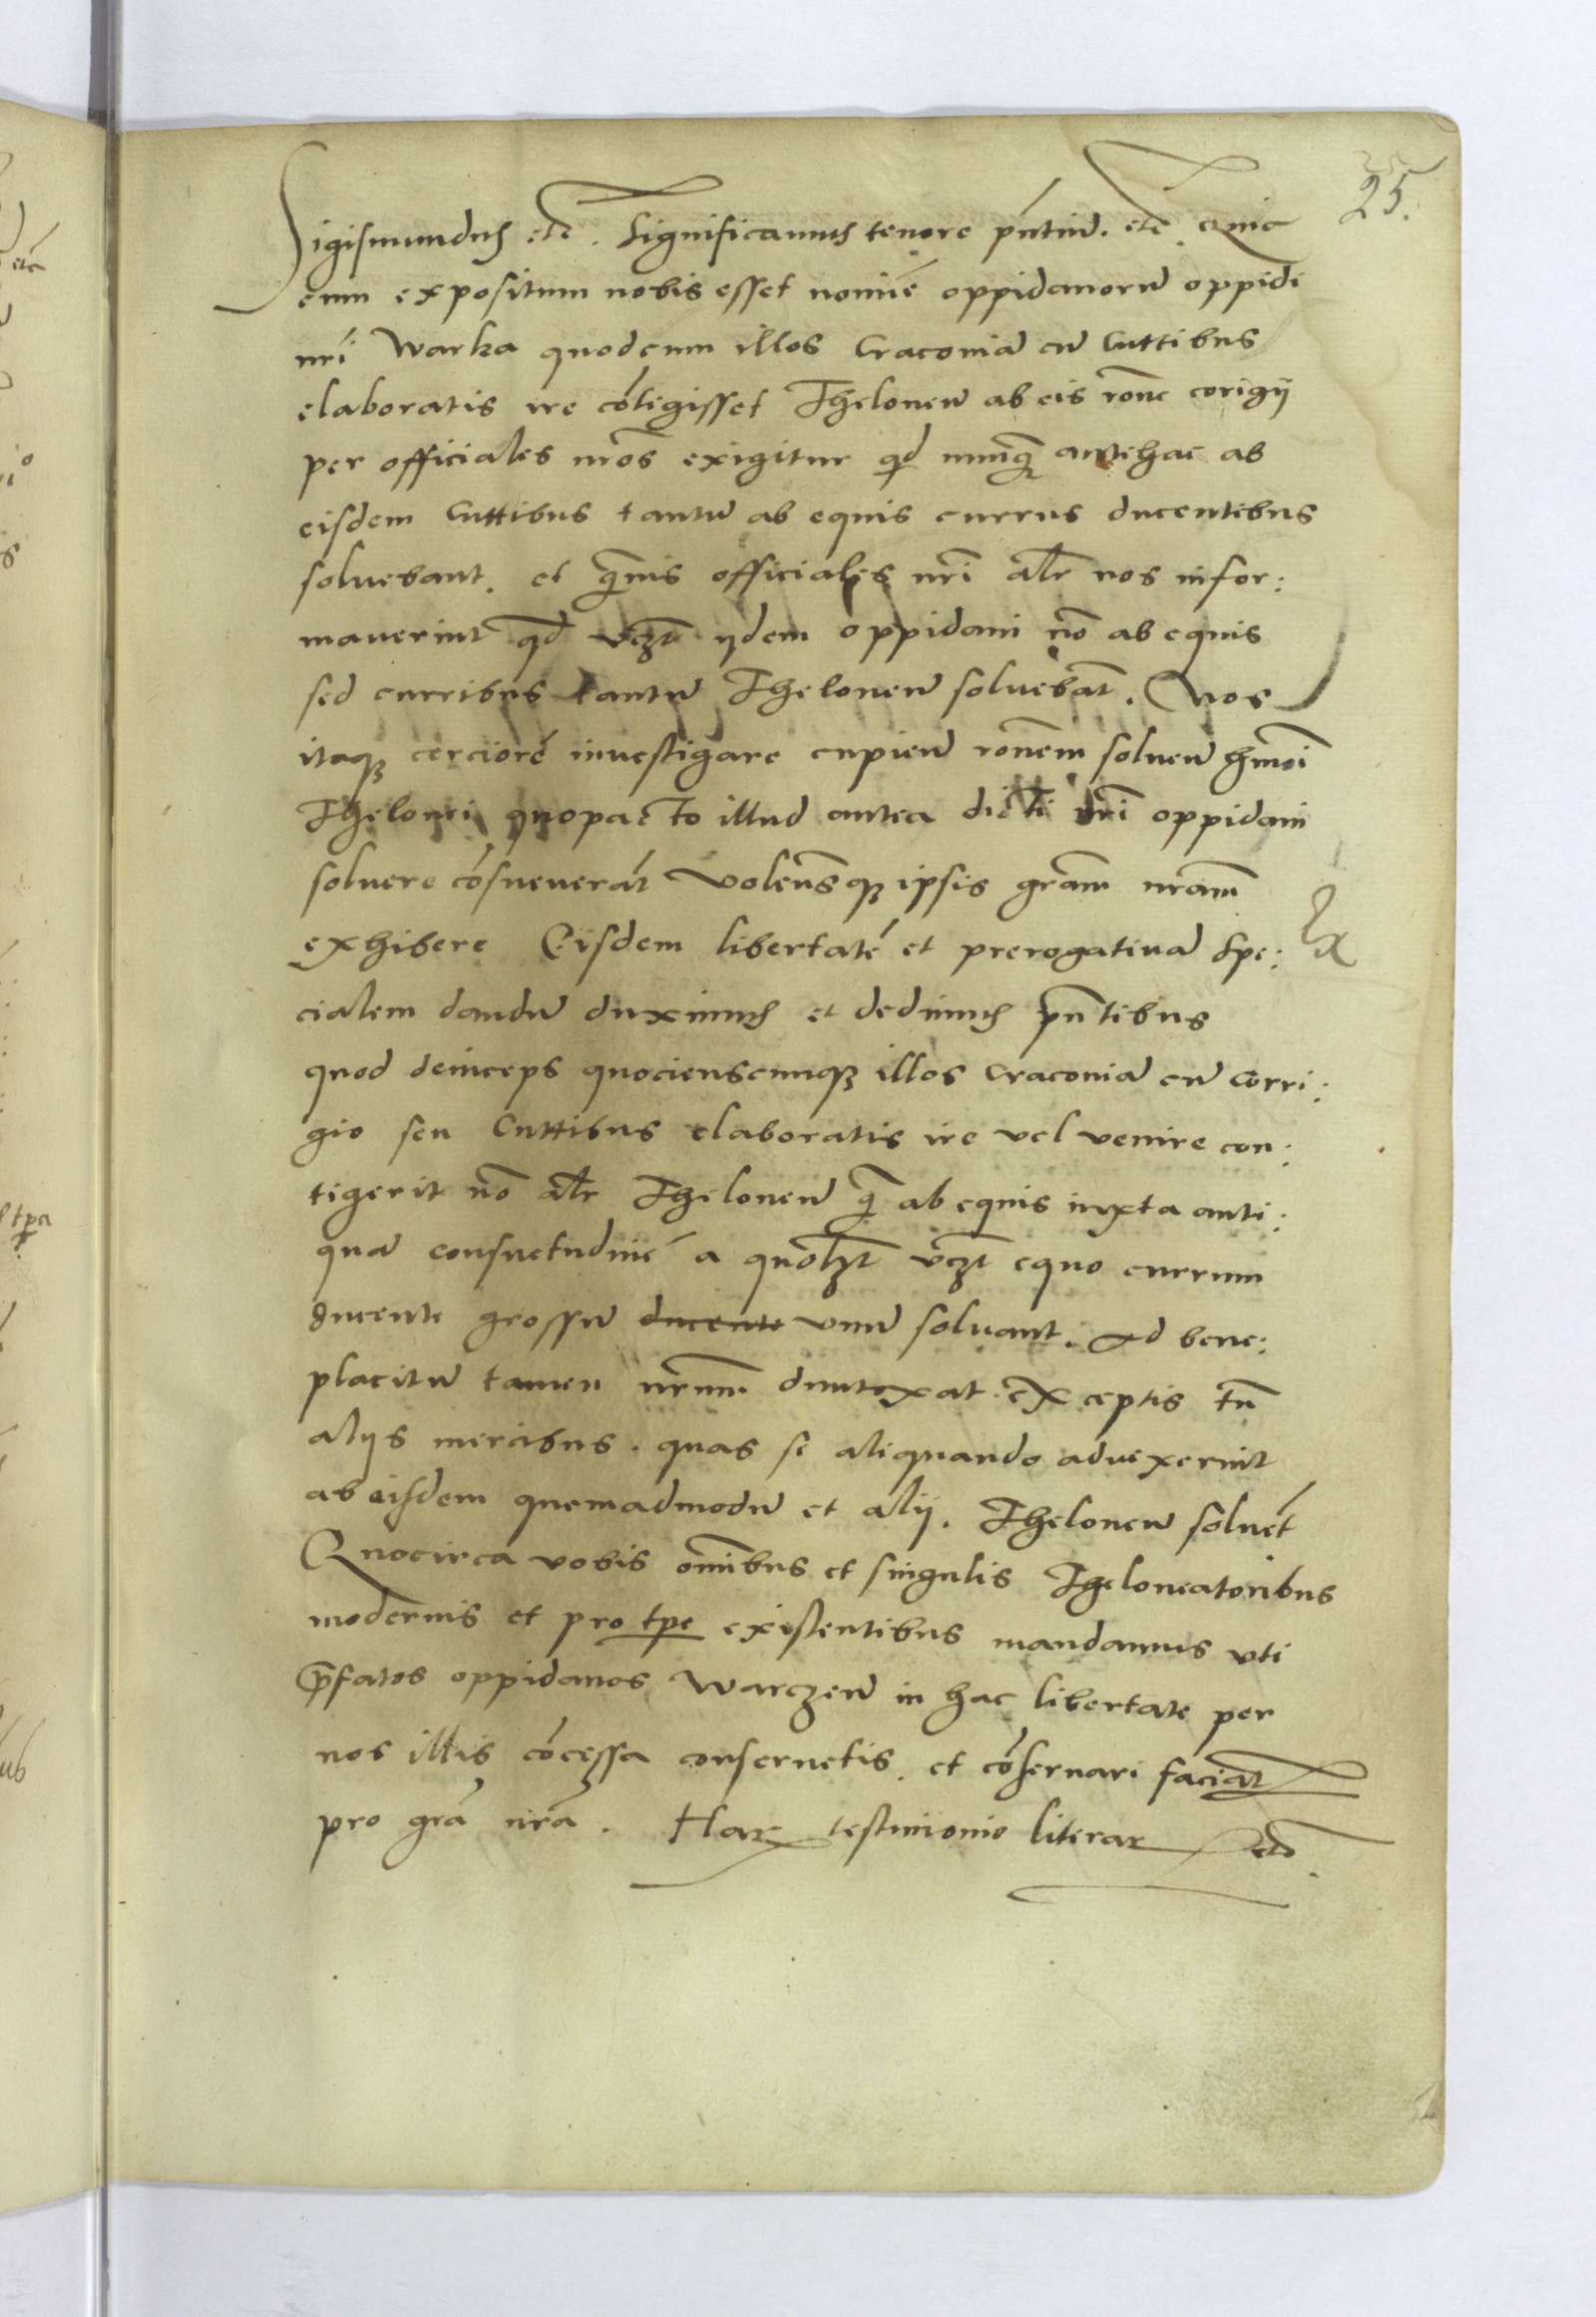 25.
Sigismundus etc. Significamus tenore pn̄tiū. etc̄. Quia
cum expositum nobis esset nomīe oppidanorū oppidi
nr̄i Warka quod cum illos Cracoviā cū Cuttibus
elaboratis ire cōtigisset Theloneū ab eis rōne corigij
per officiales nr̄os exigitur qd nunq̄ antehac ab
eisdem Cuttibus tantū ab equis currus ducentibus
soluebant. et q̄uis officiales nr̄i alr̄ nos infor:
mauerint qd vcz̄t ijdem oppidani nō ab equis
sed curribus tantū Theloneū soluebāt. Nos
itaqꝫ cerciorē inuestigare cupieñ rōnem soluēn hm̄oi
Thelonei quopacto illud antea dicti nr̄i oppidani
soluere cōsueuerāt volensqꝫ ipsis grām nr̄am
exhibere Eisdem libertatē et prerogatiuā spe:
cialem dandū duximus et dedimus pn̄tibus
quod deinceps quocienscunqꝫ illos Cracoviā cū Corri:
gio seu Cuttibus elaboratis ire vel venire con:
tigerit nō alr̄ Theloneū q̄ ab equis iuxta anti:
quā consuetudinē a quolꝫt vcꝫt equo currum
ducente grossū ducente vnū soluant. Ad bene:
placitū tamen nr̄um duntaxat. exceptis tn̄
alijs mercibus. quas si aliquando aduexerint
ab eisdem quemadmodū et alij. Theloneū soluēt
Quocirca vobis om̄ibus et singulis Theloneatoribus
modernis et pro tp̄e existentibus mandamus vti
p̄fatos oppidanos Warczeñ in hac libertate per
nos illis cōcessa conseruetis. et cōseruari faciāt
pro grā nr̄a. Har testimonio literar etc̄.